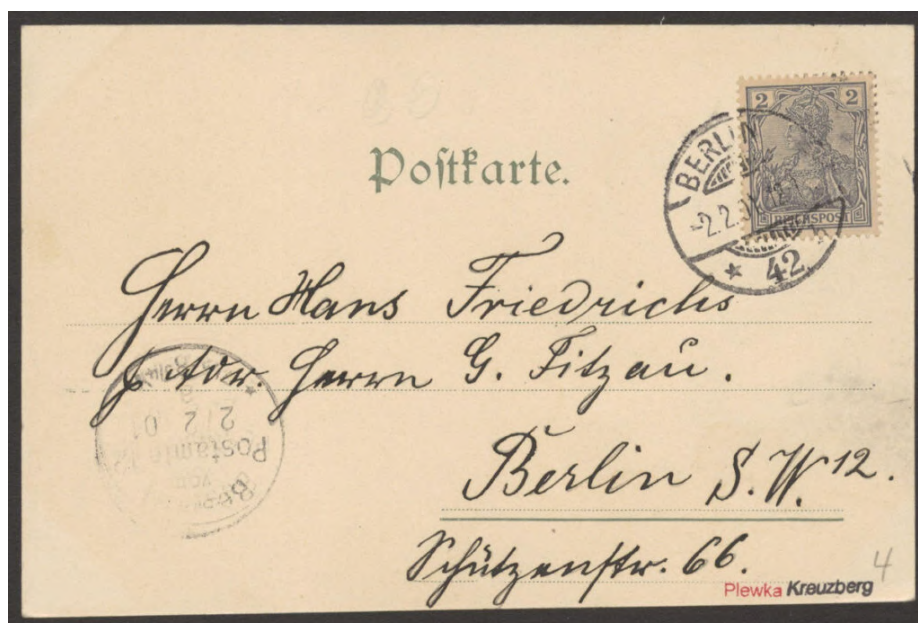 Postkarte.
2 2
REICHSPOST
BERLIN
-2.2.01.12-1
* 42
Herrn Hans Friedrichs
p. Adr. Herrn G. Fitzau.
Berlin S.W. 12.
Schützenstr. 66.
2/2 01
Postamte
Plewka Kreuzberg
4